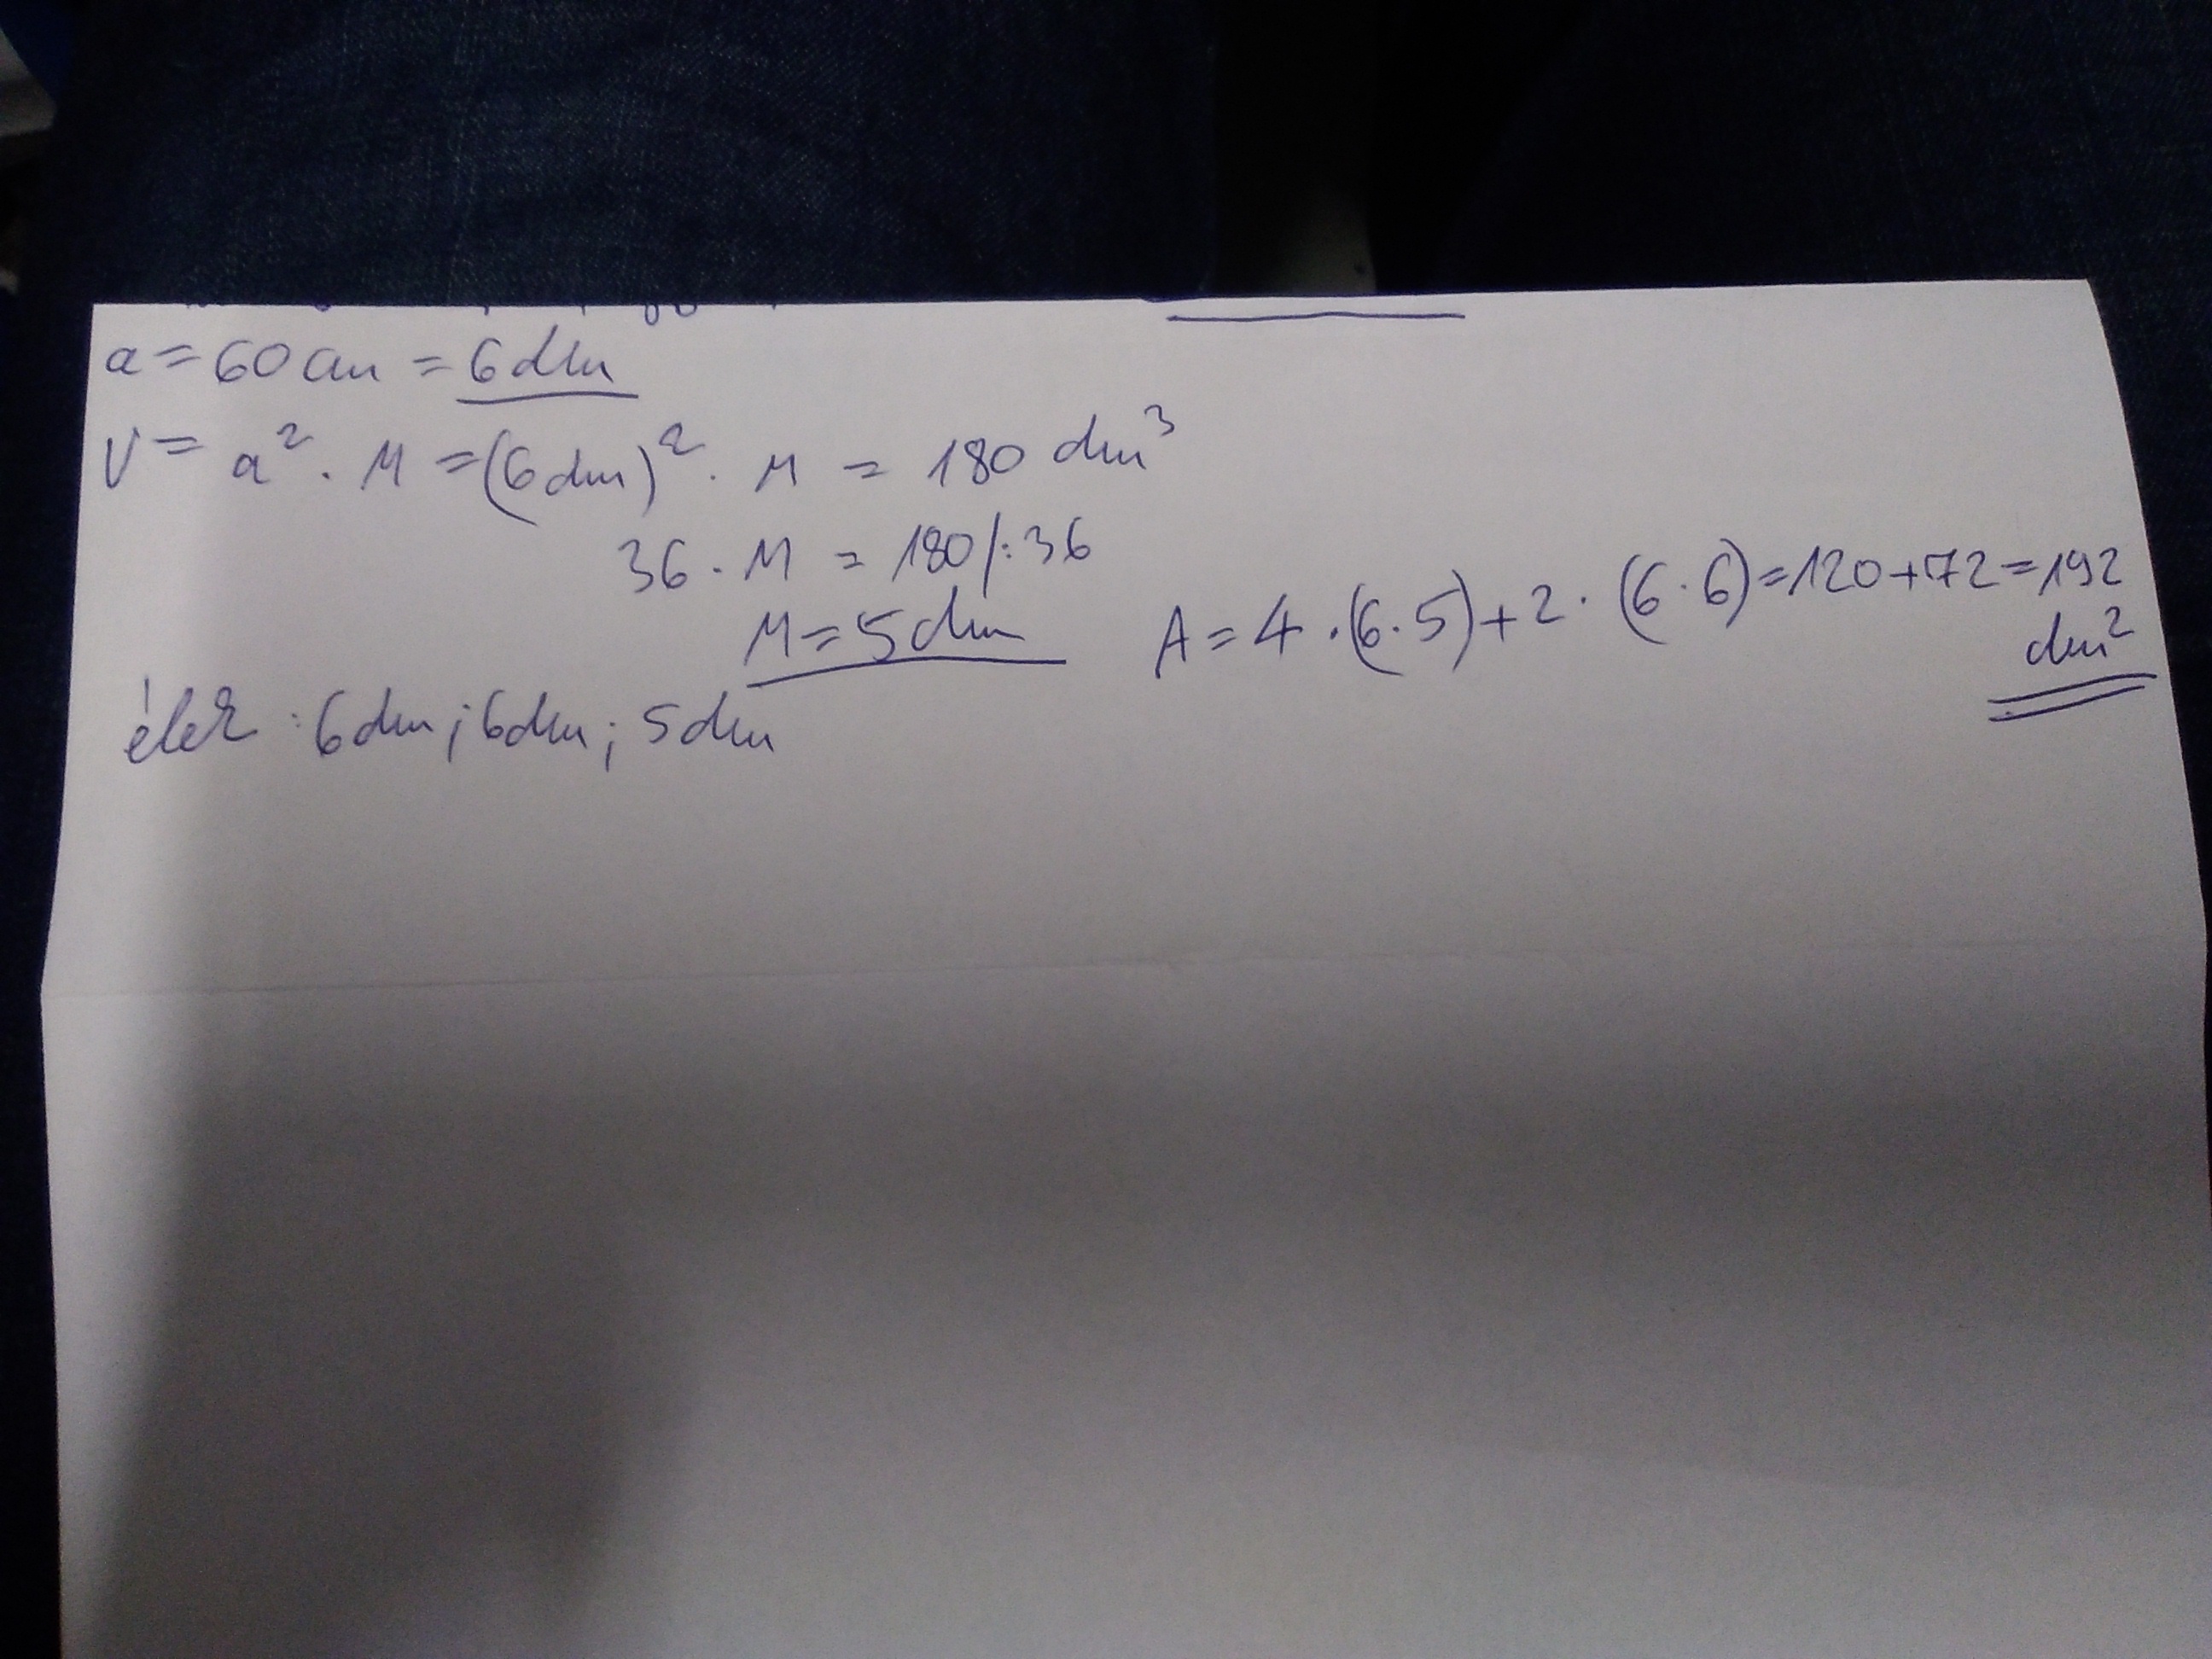 a = 60 cm = 6 dm
V = a² · M = (6 dm)² · M = 180 dm³
36 · M = 180 /:36
M = 5 dm
A = 4 · (6·5) + 2 · (6·6) = 120 + 72 = 192
dm²
élek : 6 dm ; 6 dm ; 5 dm